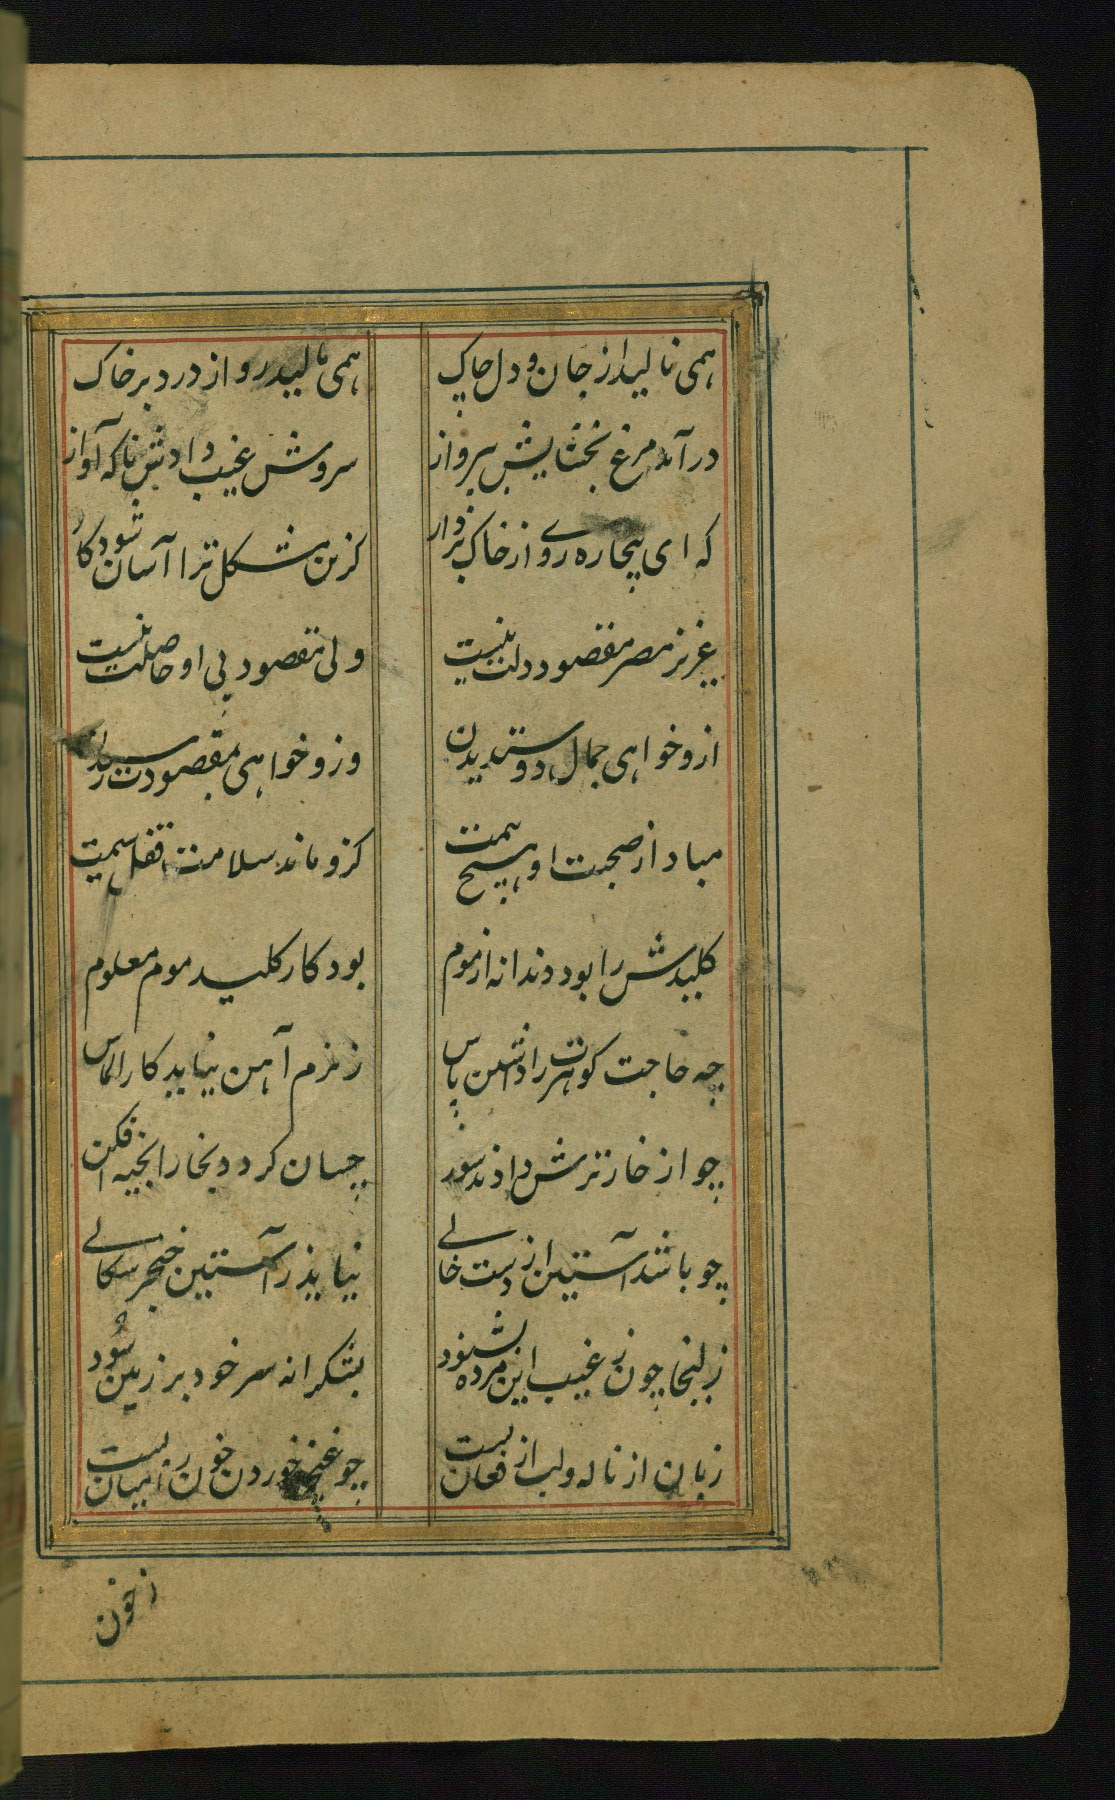 همی نالید از جان و دل چاک
همی مالید رو از درد بر خاک
در آمد مرغ بخشایش بپرواز
سروش غیب دادش ناکه آواز
که ای بیچاره روے از خاک بردار
کزین مشکل ترا آسان شود کار
عزیز مصر مقصود دلت نیست
ولی مقصود بی او حاصلت نیست
ازو خواهی جمال دوست دیدن
وزو خواهی بمقصودت رسیدن
مباد از صحبت او هیچ بیمت
کزو ماند سلامت قفل سیمت
کلیدش را بود دندانه از موم
بود کار کلید موم معلوم
چه حاجت کوهرت را داشتن پاس
ز نرم آهن نیاید کار الماس
چو از خار ترش دادند سوزن
چسان کردد بخارا بخیه افکن
چو باشد آستین از دست خالے
نیاید ز آستین خنجر سکالے
زلیخا چون ز غیب این مژده بشنود
بشکرانه سر خود بر زمین سود
زبان از ناله و لب از فغان بست
چو غنچه خوردن خون را میان بست
ز خون